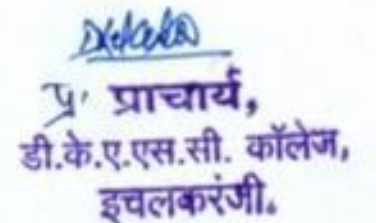 प्र. प्राचार्य,
डी.के.ए.एस.सी. कॉलेज,
इचलकरंजी.